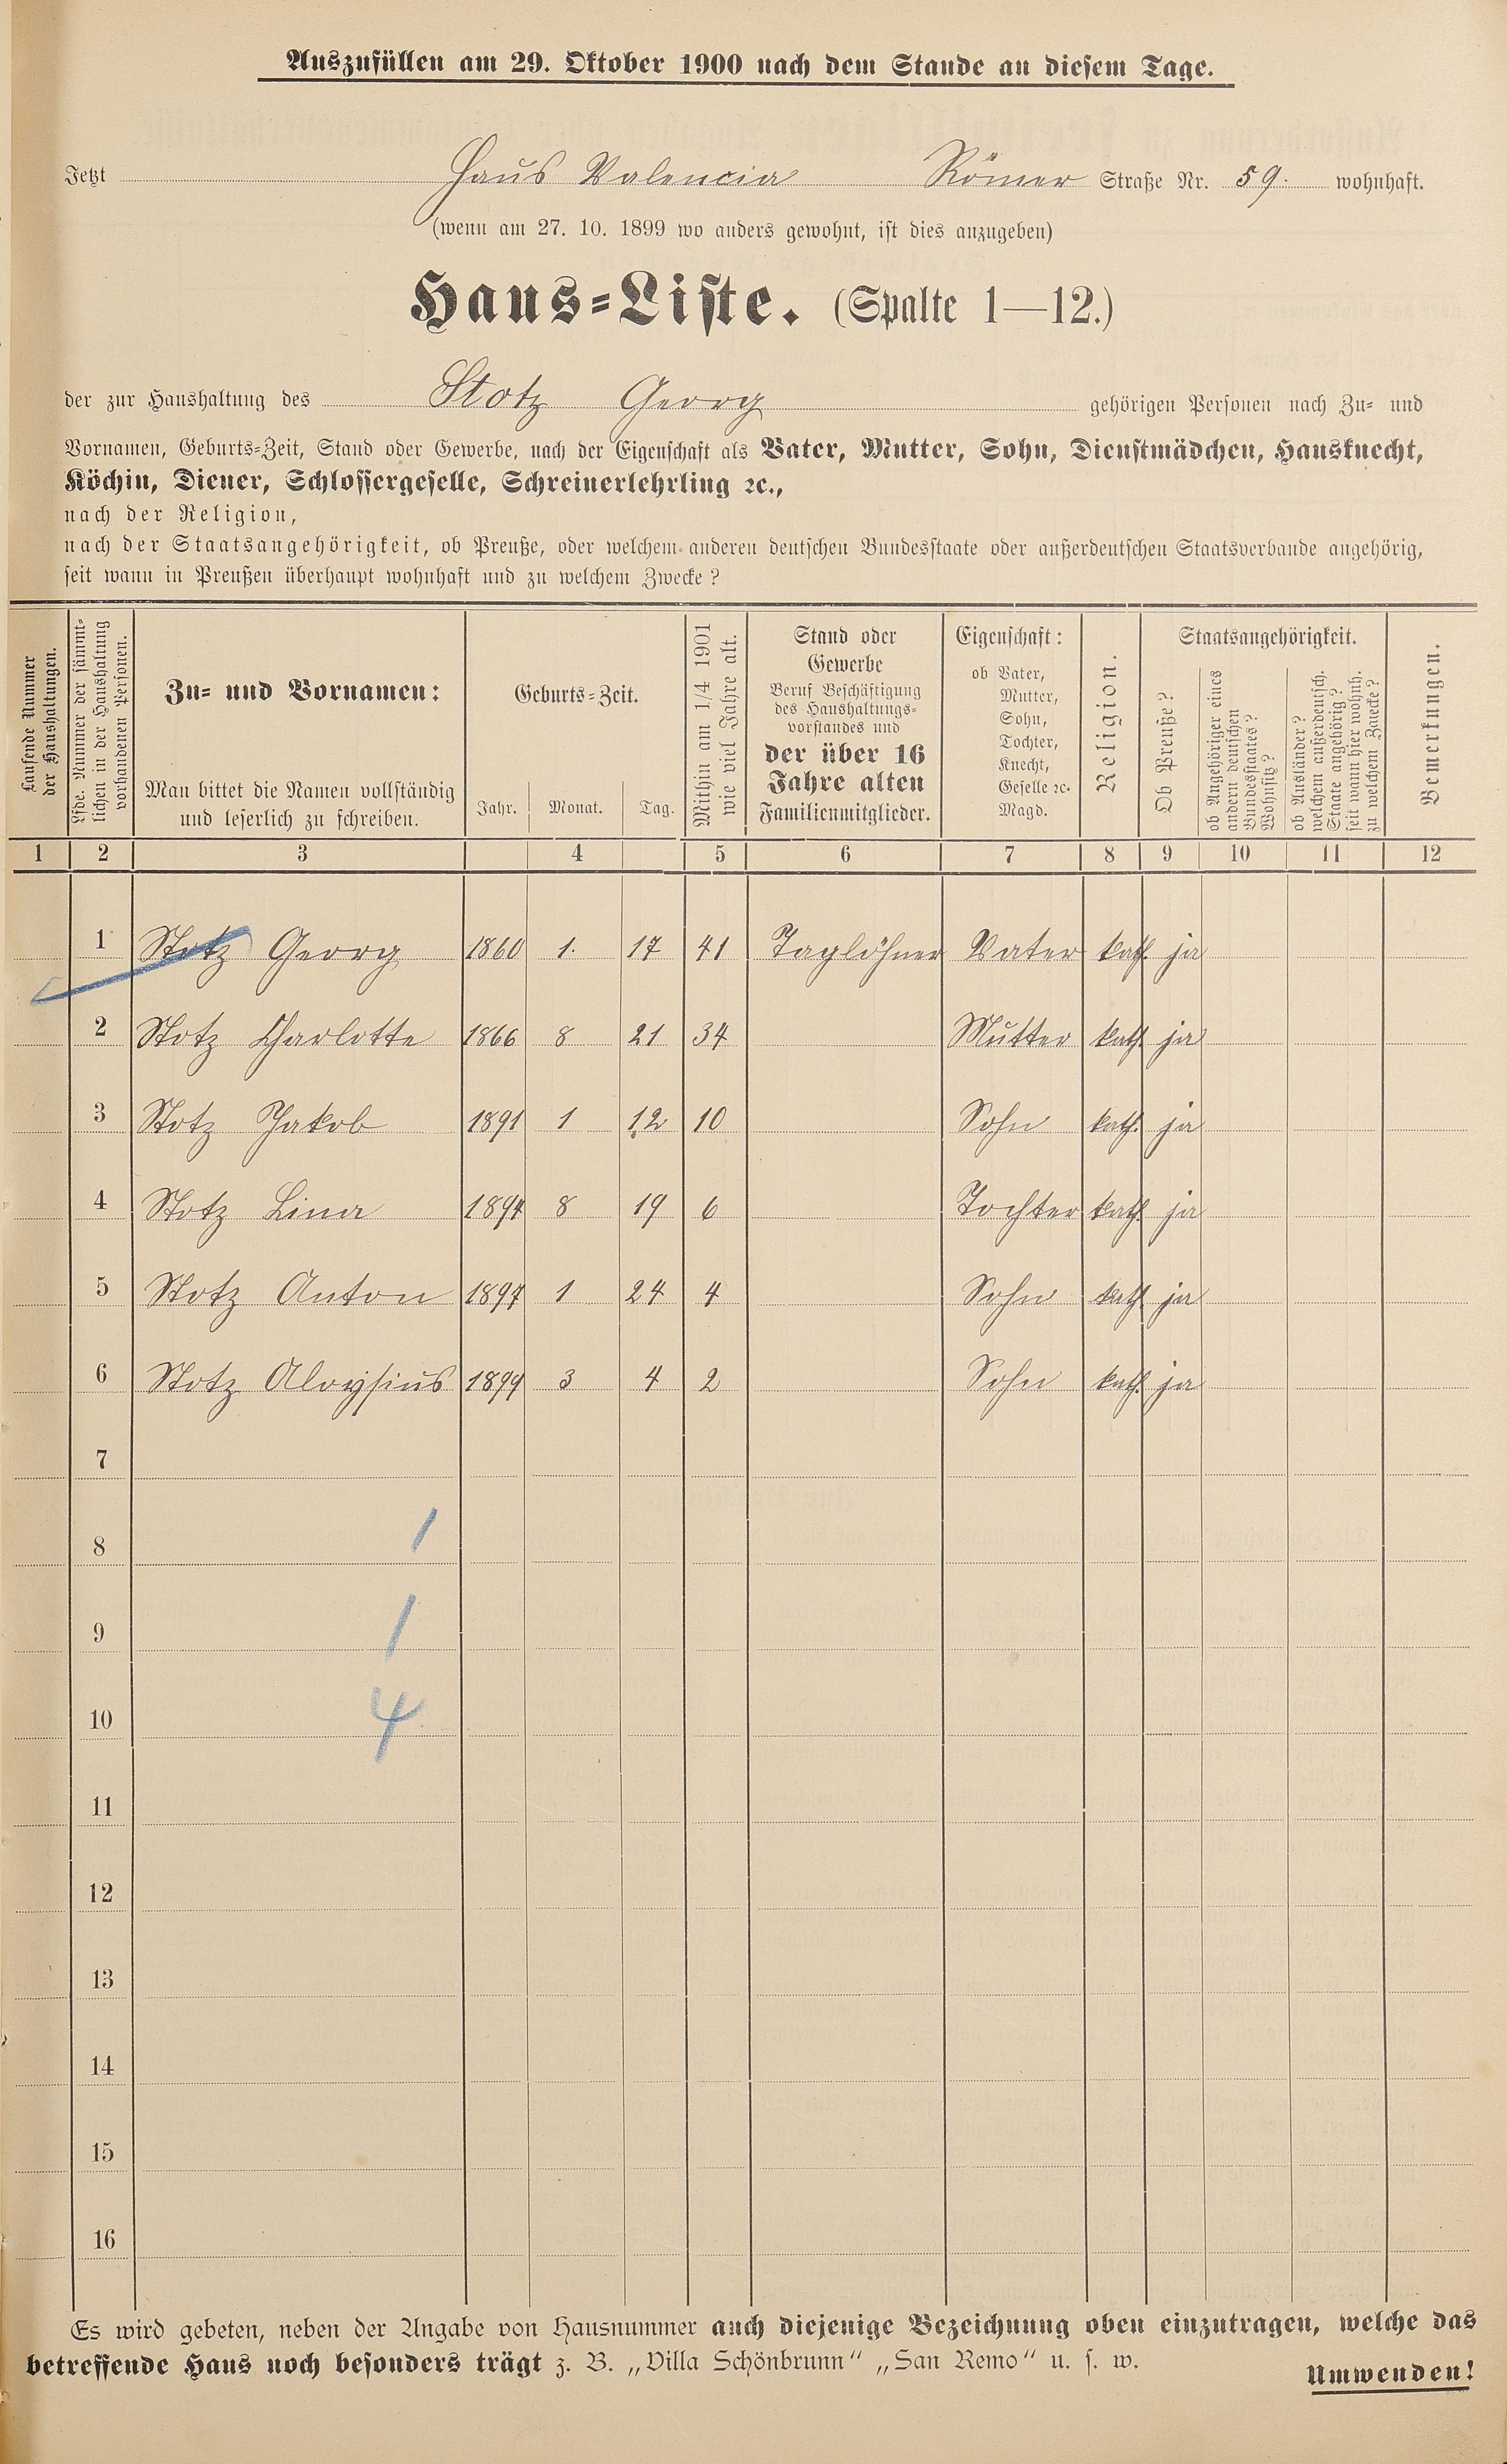 Auszufüllen am 29. Oktober 1900 nach dem Stande an diesem Tage.
Jetzt Haus Valencia Römer Straße Nr. 59. wohnhaft.
(wenn am 27. 10. 1899 wo anders gewohnt, ist dies anzugeben)
Haus-Liste. (Spalte 1—12.)
der zur Haushaltung des Stotz Georg gehörigen Personen nach Zu- und
Vornamen, Geburts-Zeit, Stand oder Gewerbe, nach der Eigenschaft als Vater, Mutter, Sohn, Dienstmädchen, Hausknecht,
Köchin, Diener, Schlossergeselle, Schreinerlehrling ꝛc.,
nach der Religion,
nach der Staatsangehörigkeit, ob Preuße, oder welchem anderen deutschen Bundesstaate oder außerdeutschen Staatsverbande angehörig,
seit wann in Preußen überhaupt wohnhaft und zu welchem Zwecke?
Laufende Nummer
der Haushaltungen.
Lfde. Nummer der sämmt-
lichen in der Haushaltung
vorhandenen Personen.
Zu- und Vornamen:
Man bittet die Namen vollständig
und leserlich zu schreiben.
Geburts-Zeit.
Jahr. Monat. Tag.
Mithin am 1/4 1901
wie viel Jahre alt.
Stand oder
Gewerbe
Beruf Beschäftigung
des Haushaltungs-
vorstandes und
der über 16
Jahre alten
Familienmitglieder.
Eigenschaft:
ob Vater,
Mutter,
Sohn,
Tochter,
Knecht,
Geselle ꝛc.
Magd.
Religion.
Staatsangehörigkeit.
Ob Preuße?
ob Angehöriger eines
andern deutschen
Bundesstaates?
Wohnsitz?
ob Ausländer?
welchem außerdeutsch.
Staate angehörig?
seit wann hier wohnh.
zu welchem Zwecke?
Bemerkungen.
1 2 3 4 5 6 7 8 9 10 11 12
1 Stotz Georg 1860 1. 17 41 Taglöhner Vater kath. ja
2 Stotz Charlotte 1866 8 21 34 Mutter kath. ja
3 Stotz Jakob 1891 1 12 10 Sohn kath. ja
4 Stotz Lina 1894 8 19 6 Tochter kath. ja
5 Stotz Anton 1897 1 24 4 Sohn kath. ja
6 Stotz Aloysius 1899 3 4 2 Sohn kath. ja
7
8 1
9 1
10 4
11
12
13
14
15
16
Es wird gebeten, neben der Angabe von Hausnummer auch diejenige Bezeichnung oben einzutragen, welche das
betreffende Haus noch besonders trägt z. B. „Villa Schönbrunn“ „San Remo“ u. s. w.
Umwenden!